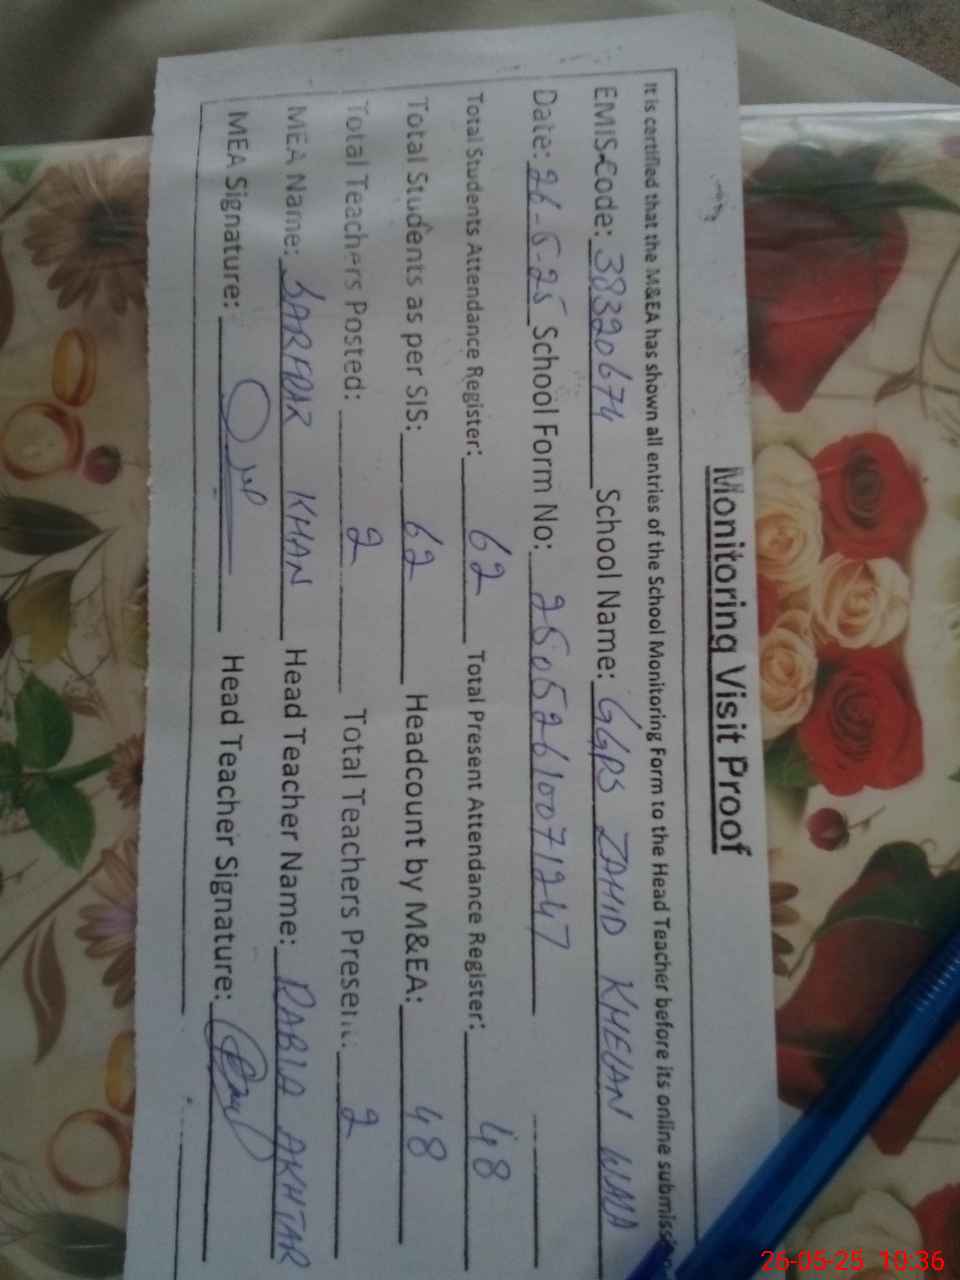 Monitoring Visit Proof
It is certified that the M&EA has shown all entries of the School Monitoring Form to the Head Teacher before its online submission
EMIS Code: 38320674 School Name: GGPS ZAHID KHELAN WALA
Date: 26-5-25 School Form No: 25052610071247
Total Students Attendance Register: 62 Total Present Attendance Register: 48
Total Students as per SIS: 62 Headcount by M&EA: 48
Total Teachers Posted: 2 Total Teachers Present: 2
MEA Name: SARFRAZ KHAN Head Teacher Name: RABIA AKHTAR
MEA Signature: Head Teacher Signature:
26-05-25 10:36